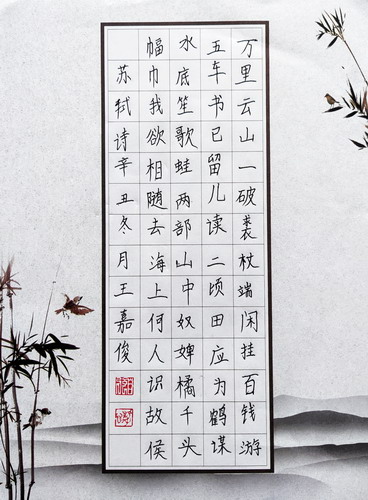 万里云山一破裘杖端闲挂百钱游
五车书已留儿读二顷田应为鹤谋
水底笙歌蛙两部山中奴婢橘千头
幅巾我欲相随去海上何人识故侯
苏轼诗辛丑冬月王嘉俊